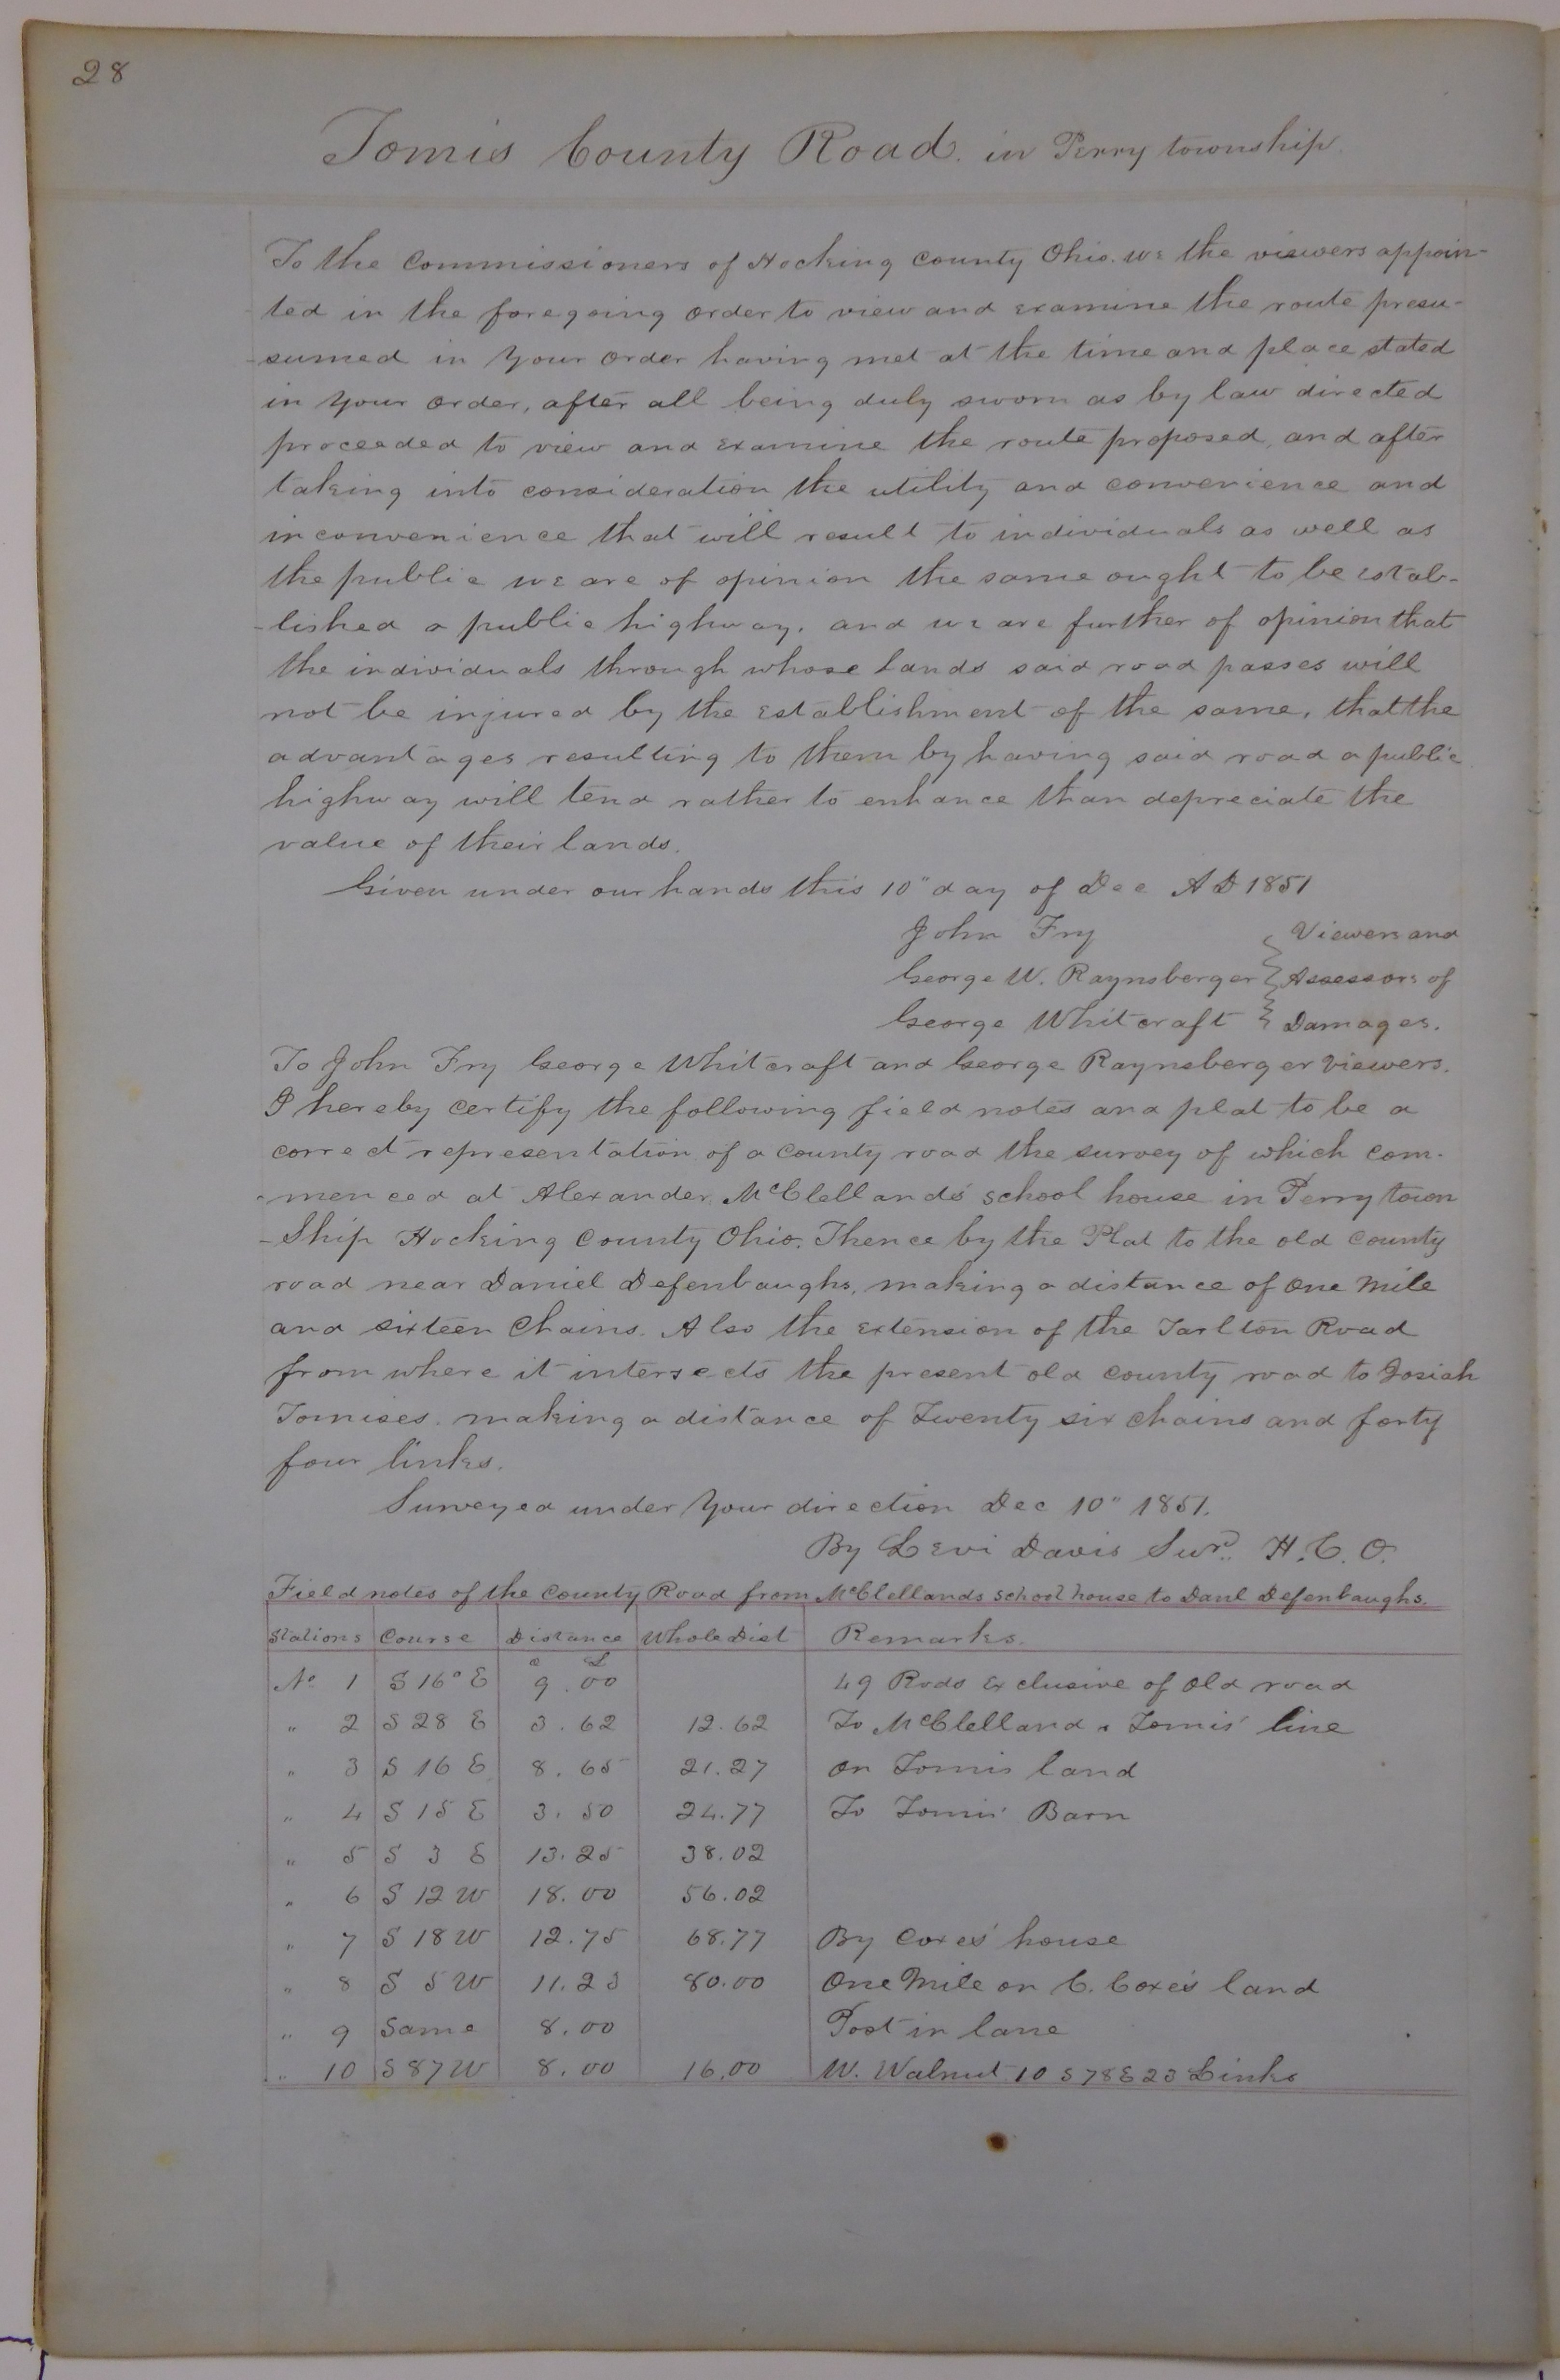 28
Tomis County Road. in Perry township.
To the Commissioners of Hocking County Ohio. We the viewers appoin-
ted in the foregoing order to view and examine the route presu-
-sumed in Your order having met at the time and place stated
in Your order, after all being duly sworn as by law directed
proceeded to view and examine the route proposed, and after
taking into consideration the utility and convenience and
inconvenience that will result to individuals as well as
the public we are of opinion the same ought to be estab-
-lished a public highway. and we are further of opinion that
the individuals through whose lands said road passes will
not be injured by the establishment of the same, that the
advantages resulting to them by having said road a public
highway will tend rather to enhance than depreciate the
value of their lands.
Given under our hands this 10" day of Dec A D 1851
John Fry } Viewers and
George W. Raynsberger } Assessors of
George Whitcraft } Damages.
To John Fry George Whitcraft and George Raynsberger Viewers.
I hereby certify the following field notes and plat to be a
correct representation of a county road the survey of which com-
-menced at Alexander McClelland's school house in Perry town
-Ship Hocking County Ohio. Thence by the Plat to the old County
road near Daniel Defenbaughs, making a distance of One Mile
and sixteen Chains. Also the extension of the Tarlton Road
from where it intersects the present old county road to Josiah
Tomises. making a distance of Twenty six chains and forty
four links.
Surveyed under Your direction Dec 10" 1851.
By Levi Davis Surd. H. C. O.
Field notes of the County Road from McClellands school house to Danl Defenbaughs.
Stations Course Distance Whole Dist Remarks.
C L
No 1 S 16° E 9.00 49 Rods Exclusive of Old road
" 2 S 28 E 3.62 12.62 To McClelland & Tomis' line
" 3 S 16 E 8.65 21.27 On Tomis land
" 4 S 15 E 3.50 24.77 To Tomis' Barn
" 5 S 3 E 13.25 38.02
" 6 S 12 W 18.00 56.02
" 7 S 18 W 12.75 68.77 By Coxes' house
" 8 S 5 W 11.23 80.00 One Mile on C. Coxe's land
" 9 Same 8.00 Post in lane
" 10 S 87 W 8.00 16.00 W. Walnut 10 S 78 E 23 Links